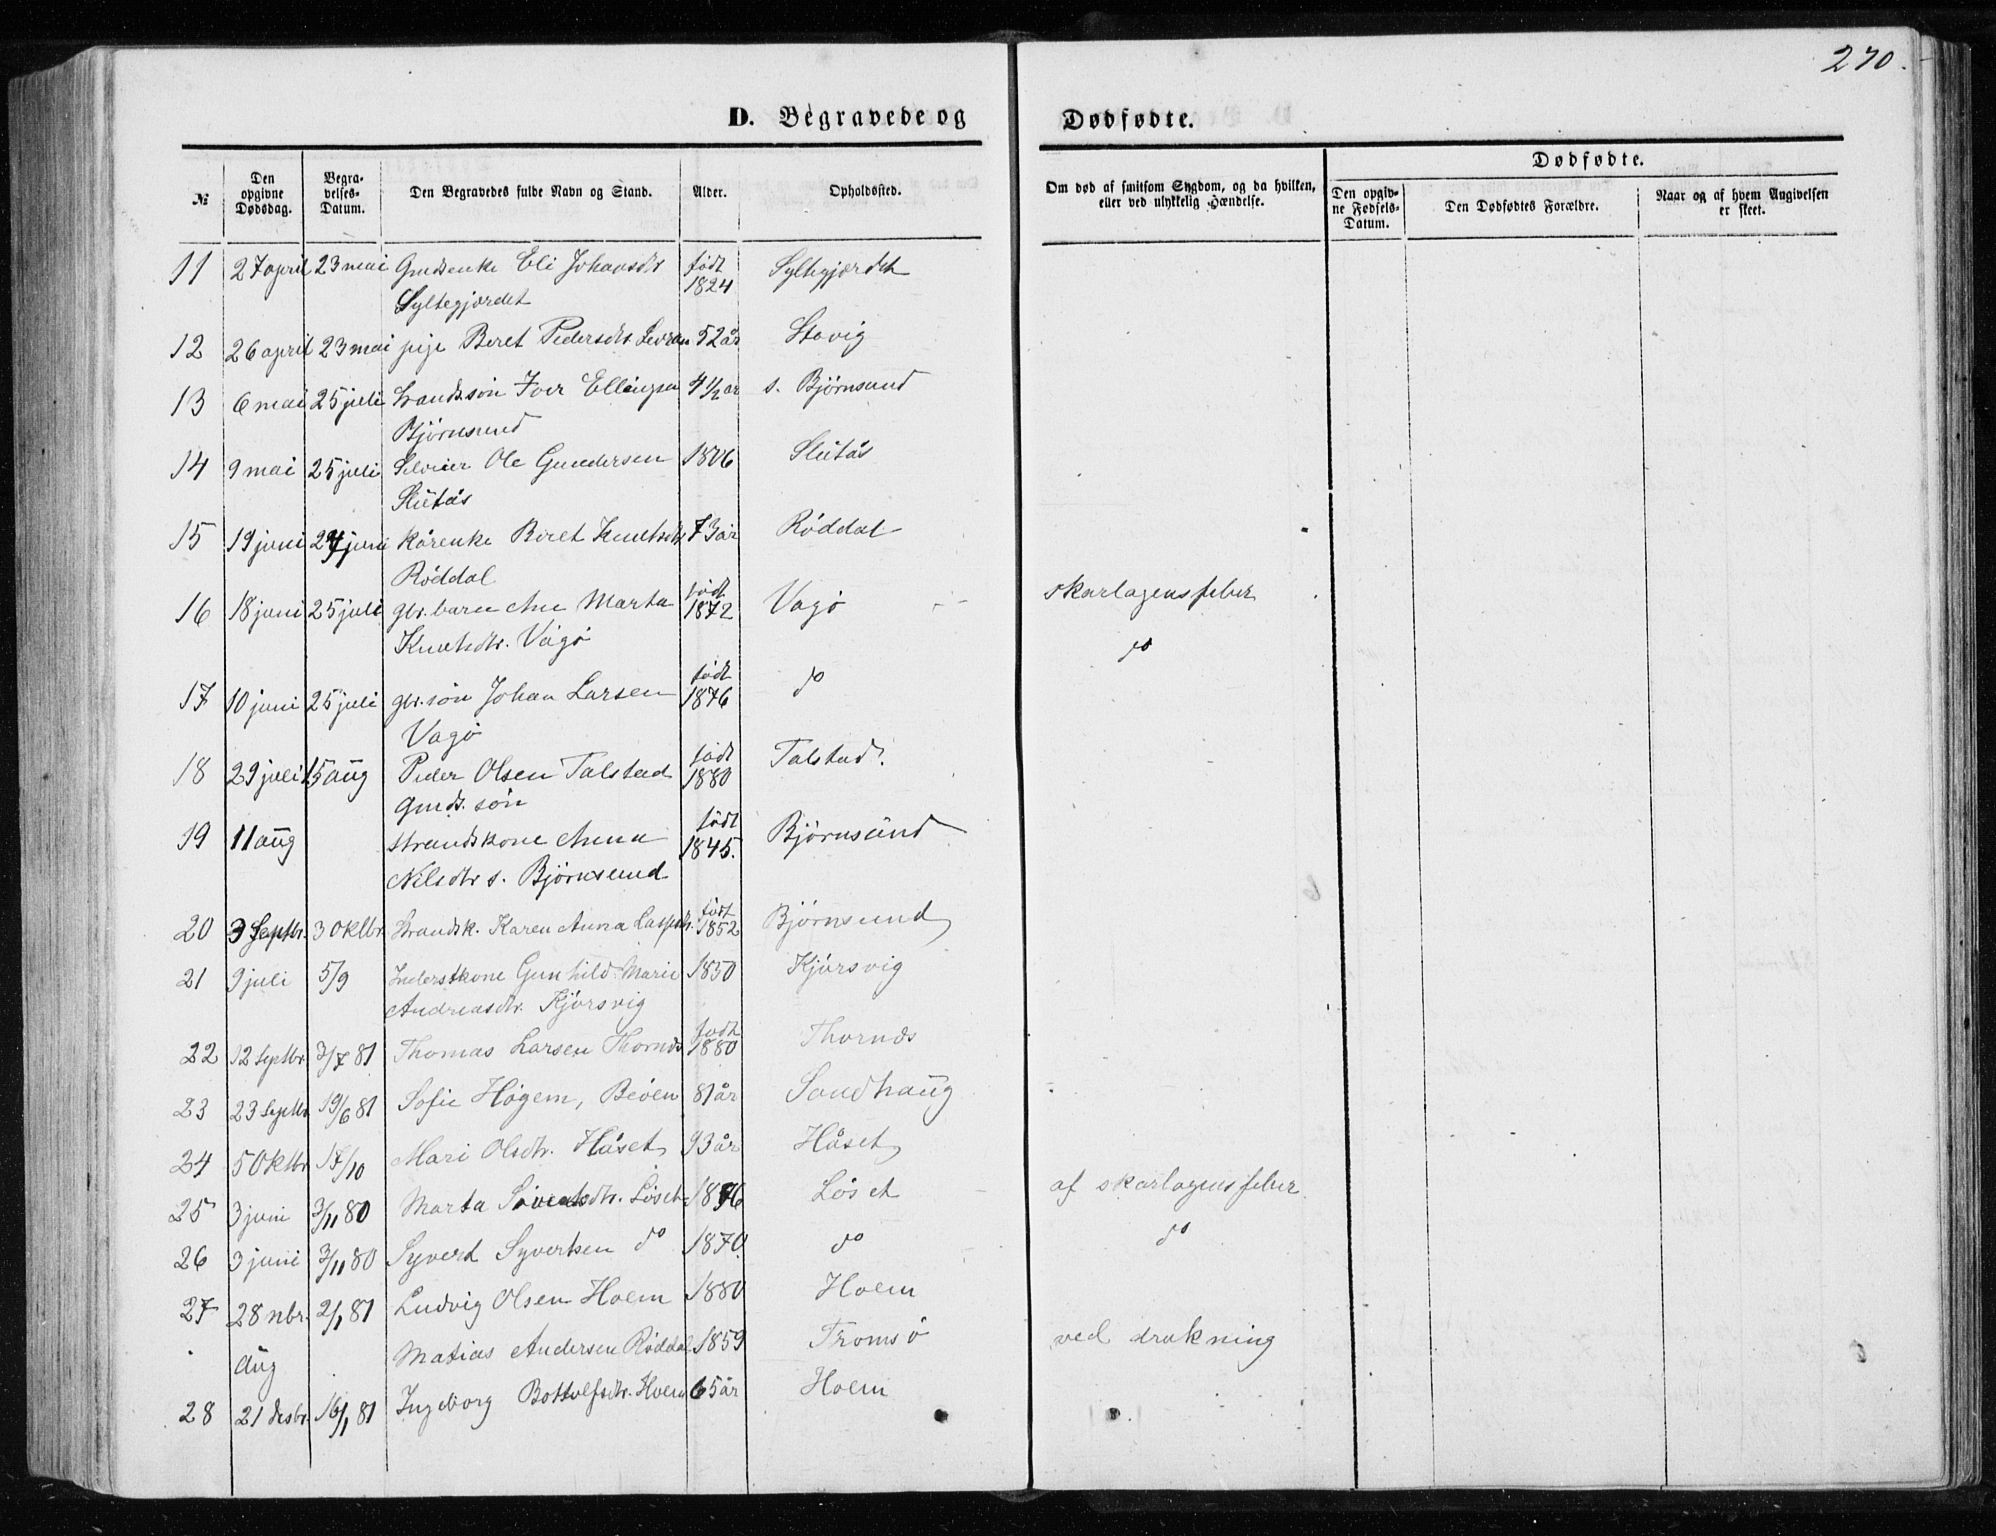 270.
D. Begravede og Dødfødte.
№
Den opgivne Dødsdag.
Begravelses-Datum.
Den Begravedes fulde Navn og Stand.
Alder.
Opholdssted.
Om død af smitsom Sygdom, og da hvilken, eller ved ulykkelig Hændelse.
Dødfødte.
Den opgivne Fødsels-Datum.
Den Dødfødtes Forældre.
Naar og af hvem Angivelsen er skeet.
11 27 april 23 mai Gmdsenke Eli Johansdtr født 1824 Syltegjærdet
Syltegjærdet
12 26 april 23 mai pige Beret Pedersdtr 52 år Stavig
13 6 mai 25 juli Strandssøn Iver Ellingsen 4 1/2 år s. Bjørnsund
Bjørnsund
14 9 mai 25 juli Ole Gundersen 1806 Slutås
Slutås
15 19 juni 24 juni Kårenke Beret Knutsdtr 73 år Røddal
Røddal
16 18 juni 25 juli gbr. barn Ane Marta født 1872 Vagø skarlagensfeber
Knutsdtr. Vågø
17 10 juni 25 juli gbr. søn Johan Larsen født 1876 do do
Vagø
18 29 juli 15 aug Peder Olsen Talstad født 1880 Talstad.
Gmds. søn
19 11 aug Strandskone Anna født 1845. Bjørnsund
Nilsdtr s. Bjørnsund
20 3 Septbr. 3 Oktbr. Strandsk. Karen Anna født 1852 Bjørnsund
21 9 juli 5/9 Inderstkone Gunhild Marie 1850 Kjørsvig
Andreasdtr. Kjørsvig
22 12 Septbr. 3/7 81 Thomas Larsen Thornæs født 1880 Thornæs
23 23 Septbr 19/6 81 Sofie Høgem, 81 år Sandhaug
24 5 Oktbr 17/10 Mari Olsdtr. Håset 93 år Håset
25 3 juni 3/11 80 Marta Sivertsdtr. Løset 1876 Løset af skarlagensfeber
26 3 juni 3/11 80 Syverd Syvertsen do 1870. do do
27 28 nbr. 2/1 81 Ludvig Olsen Holem 1880 Holem
Aug Matias Andersen Røddal 1859 Tromsø ved drukning
28 21 desbr. 16/1 81 Ingeborg Bottolfsdtr. Holem 65 år Holem